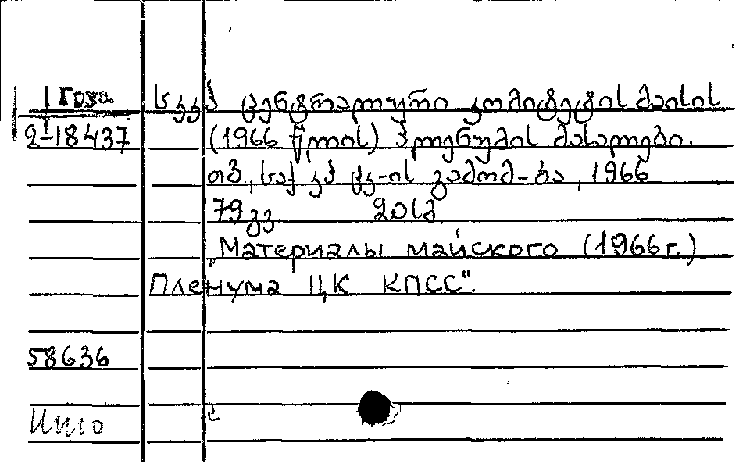 Груз. სკკპ ცენტრალური კომიტეტის მაისის
2-18437 (1966 წლის) პლენუმის მასალები.
თბ., საქ კპ ცკ-ის გამომ-ბა, 1966
79 გვ 20სმ
"Материалы майского (1966 г.)
Пленума ЦК КПСС".
58636